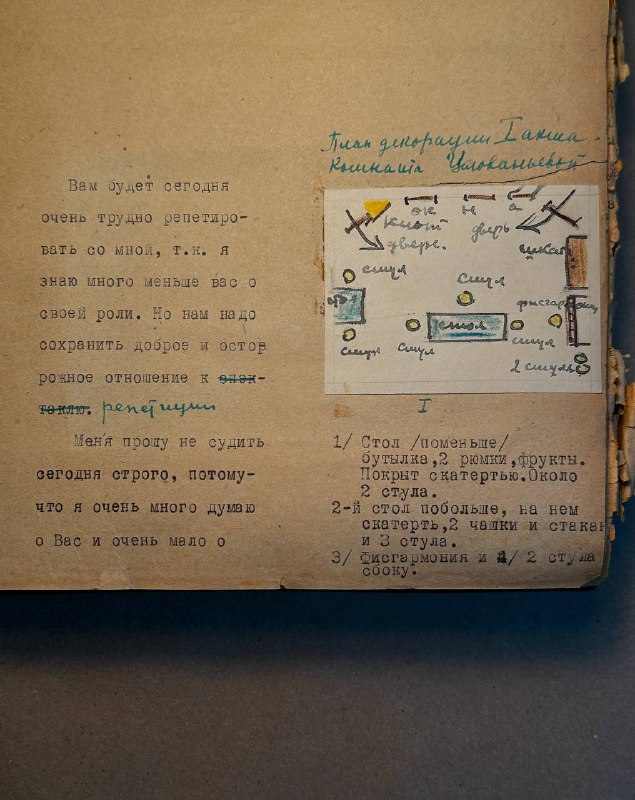 Вам будет сегодня
очень трудно репетиро-
вать со мной, т.к. я
знаю много меньше вас о
своей роли. Но нам надо
сохранить доброе и остор
рожное отношение к спек-
таклю. репетиции
Меня прошу не судить
сегодня строго, потому-
что я очень много думаю
о Вас и очень мало о
План декорации I акта.
Комната
ок н а
дверь
шкаф
дверь.
стул
стул
стол
стул
стол
стул
стул
2 стула
I
1/ Стол /поменьше/
бутылка,2 рюмки,фрукты.
Покрыт скатертью.Около
2 стула.
2-й стол побольше, на нем
скатерть,2 чашки и стакан
и 3 стула.
3/ Фисгармония и 4/ 2 стула
сбоку.